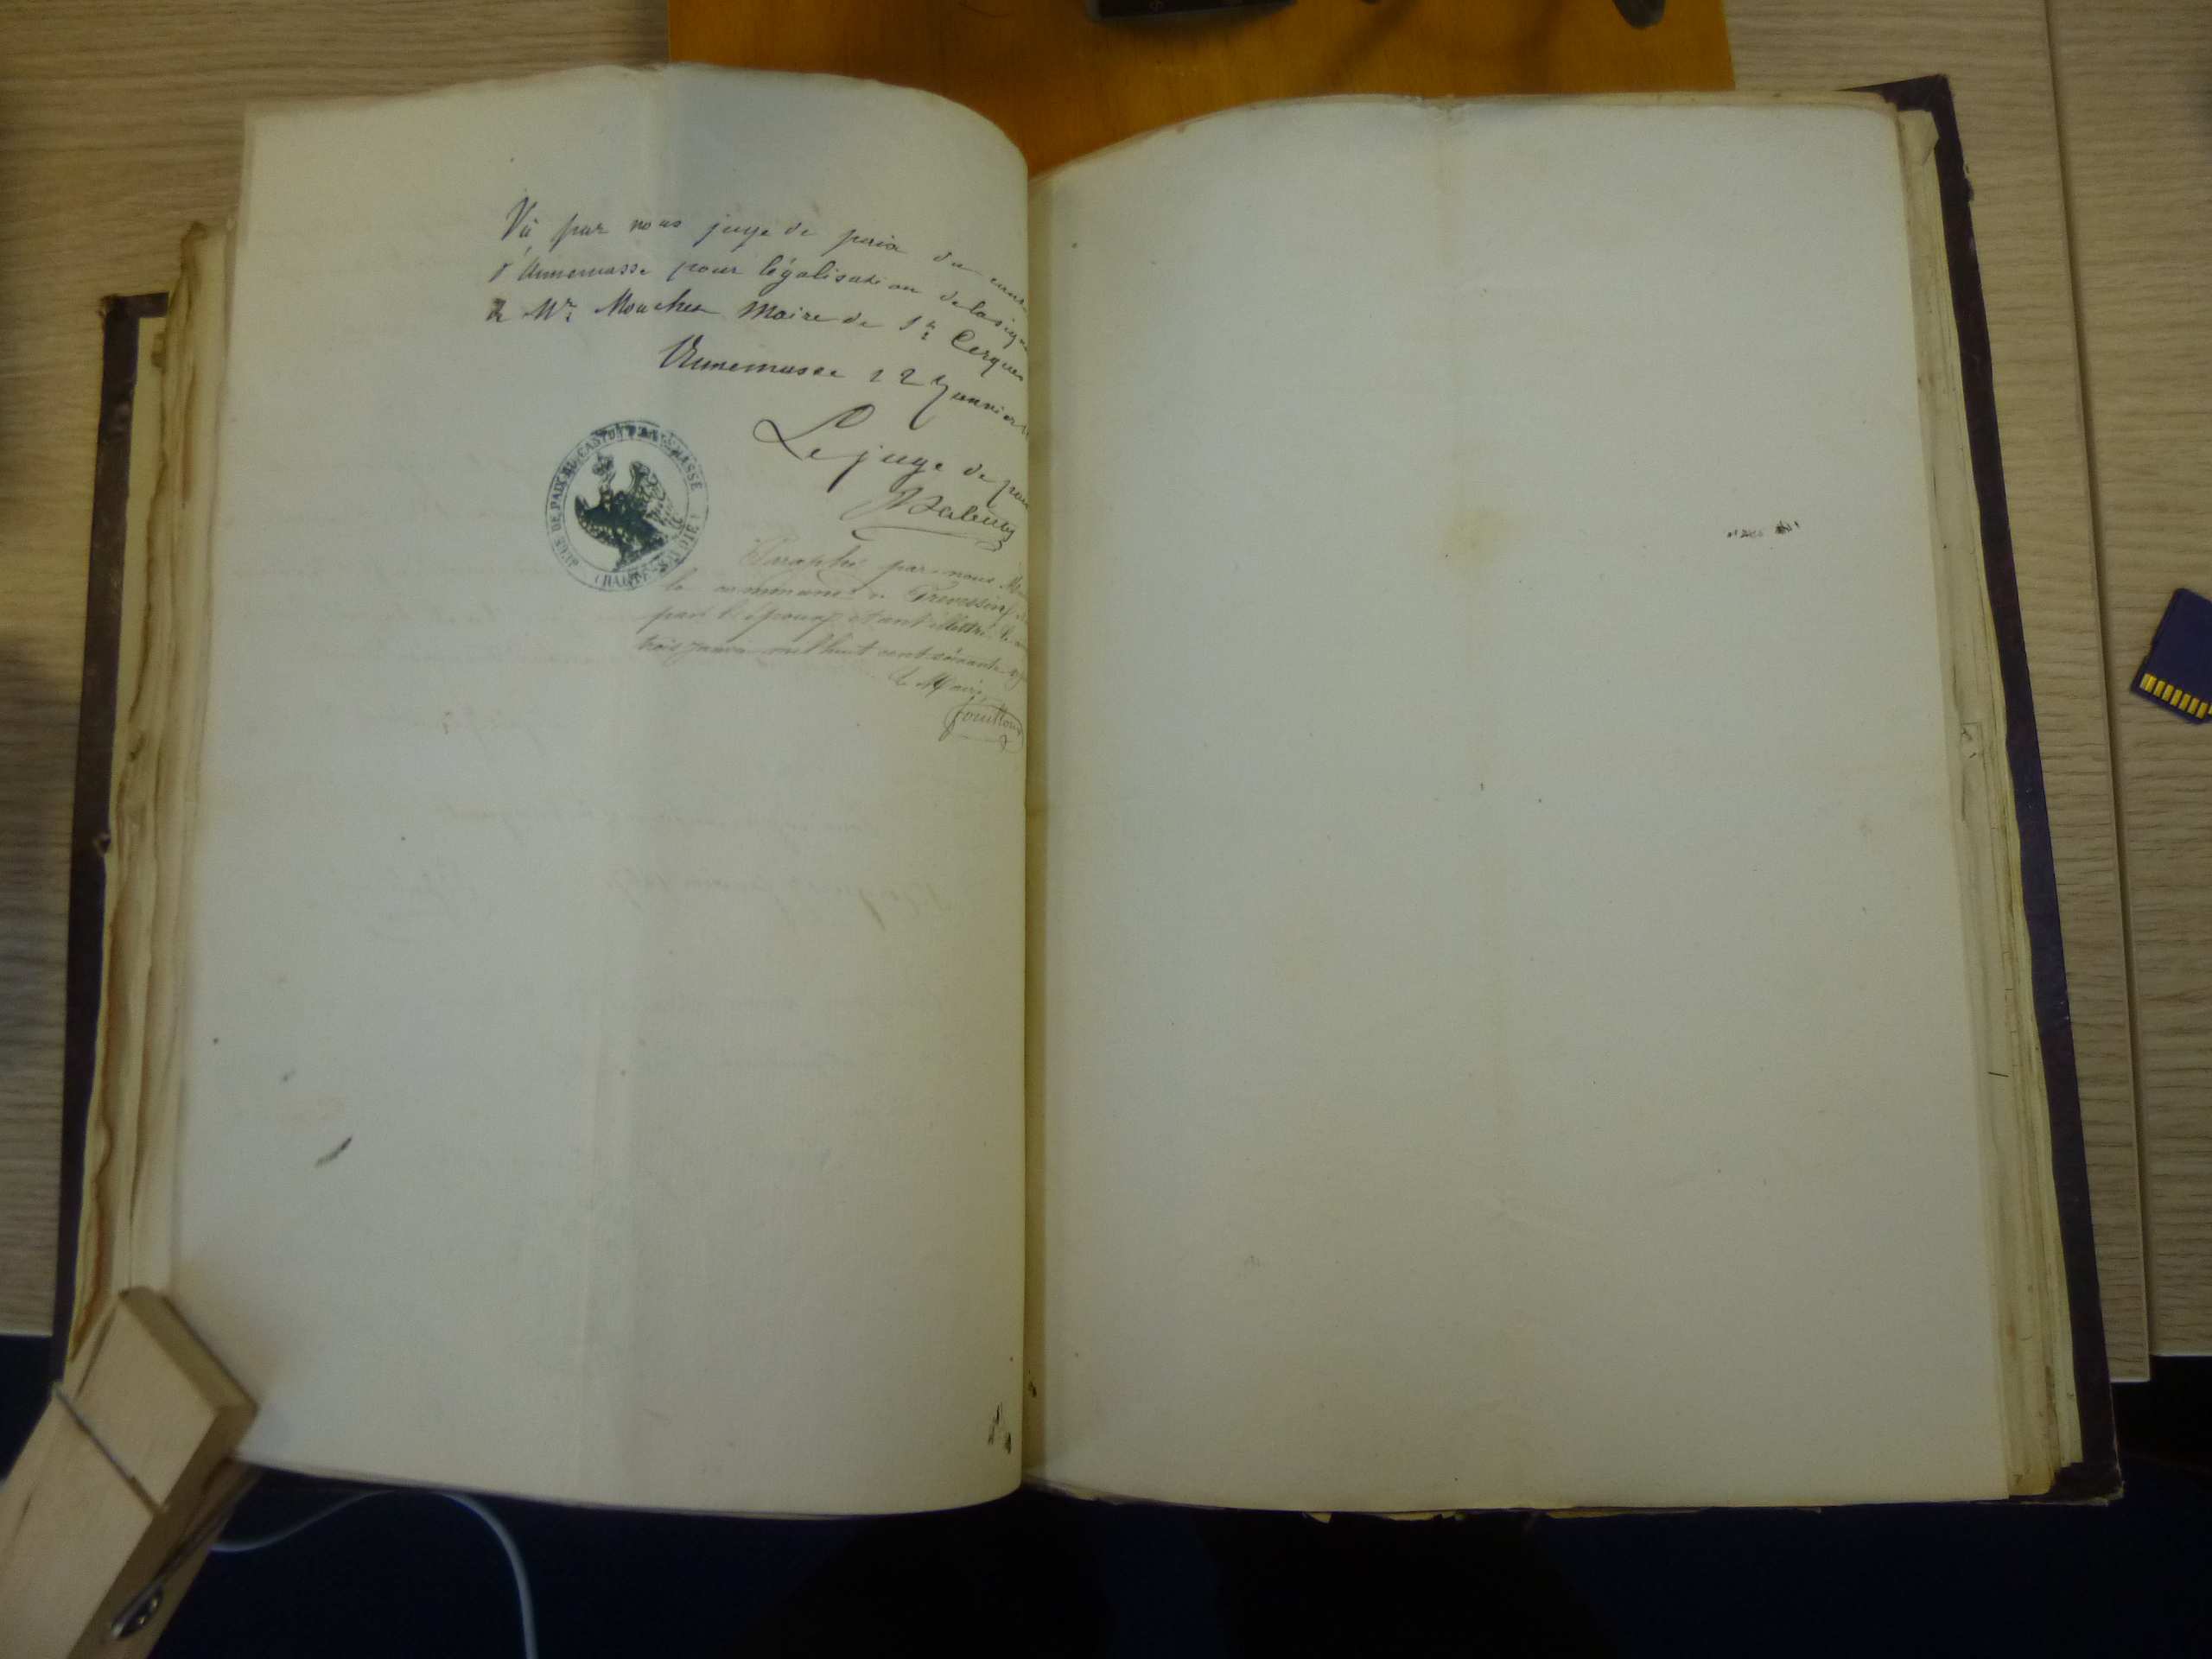 Vu par nous juge de paix du cant
d'Annemasse pour légalisation de la sign
de Mr Mouchet Maire de St Cergues
Annemasse 22 Janvier
Le juge de paix
JUGE DE PAIX DU CANTON D'ANNEMASSE
(HAUTE-SAVOIE)
Paraphé par nous M
la commune de Prevessin
par l'époux étant illettré le
trois janvier mil huit cent soixante
le Maire